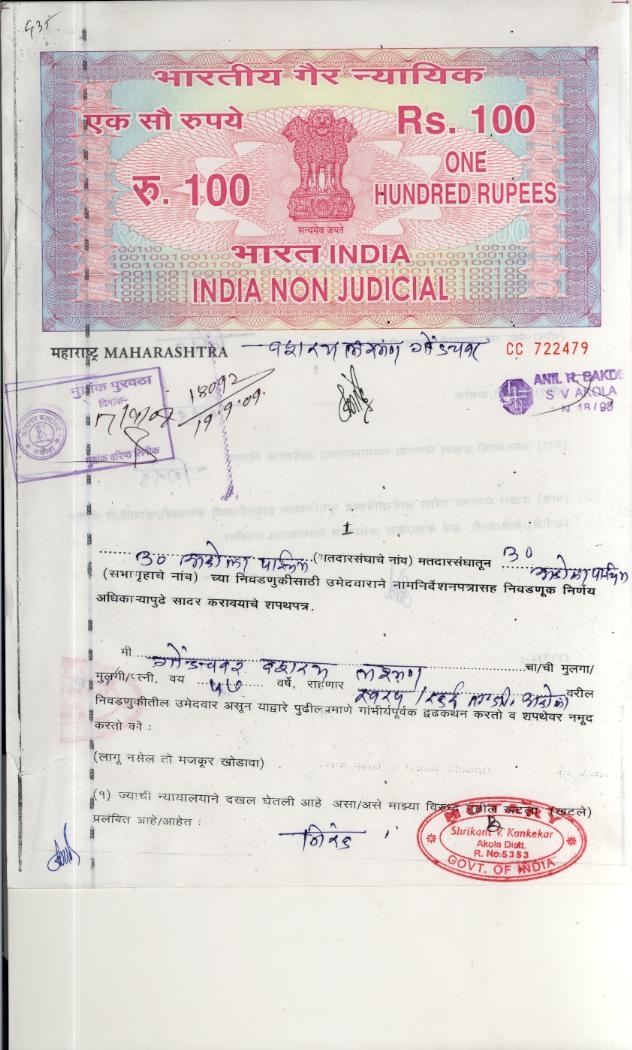 935
भारतीय गैर न्यायिक
एक सौ रुपये
Rs. 100
रु. 100
ONE
HUNDRED RUPEES
सत्यमेव जयते
भारत INDIA
INDIA NON JUDICIAL
महाराष्ट्र MAHARASHTRA
दशरथ लक्ष्मण गोंडचवर
CC 722479
मुद्रांक पुरवठा
दिनांक
मुद्रांक वरिष्ठ लिपीक
18092
19.9.09.
ANIL R. BAKD
S V AKOLA
N 18/98
1
३० अकोला पश्चिम (मतदारसंघाचे नांव) मतदारसंघातून ३०
अकोला पश्चिम
(सभागृहाचे नांव) च्या निवडणुकीसाठी उमेदवाराने नामनिर्देशनपत्रासह निवडणूक निर्णय
अधिकाऱ्यापुढे सादर करावयाचे शपथपत्र.
मी गोंडचवर दशरथ लक्ष्मण चा/ची मुलगा/
मुलगी/पत्नी, वय ५७ वर्षे, राहणार अकोला वरील
निवडणुकीतील उमेदवार असून याद्वारे पुढीलप्रमाणे गांभीर्यपूर्वक दृढकथन करतो व शपथेवर नमूद
करतो की :
(लागू नसेल तो मजकूर खोडावा)
(१) ज्याची न्यायालयाने दखल घेतली आहे असा/असे माझ्या विरुध्द पुढील खटला (खटले)
प्रलंबित आहे/आहेत :
निरंक
Shrikant V. Kankekar
Akola Distt.
R. No:5353
GOVT. OF INDIA